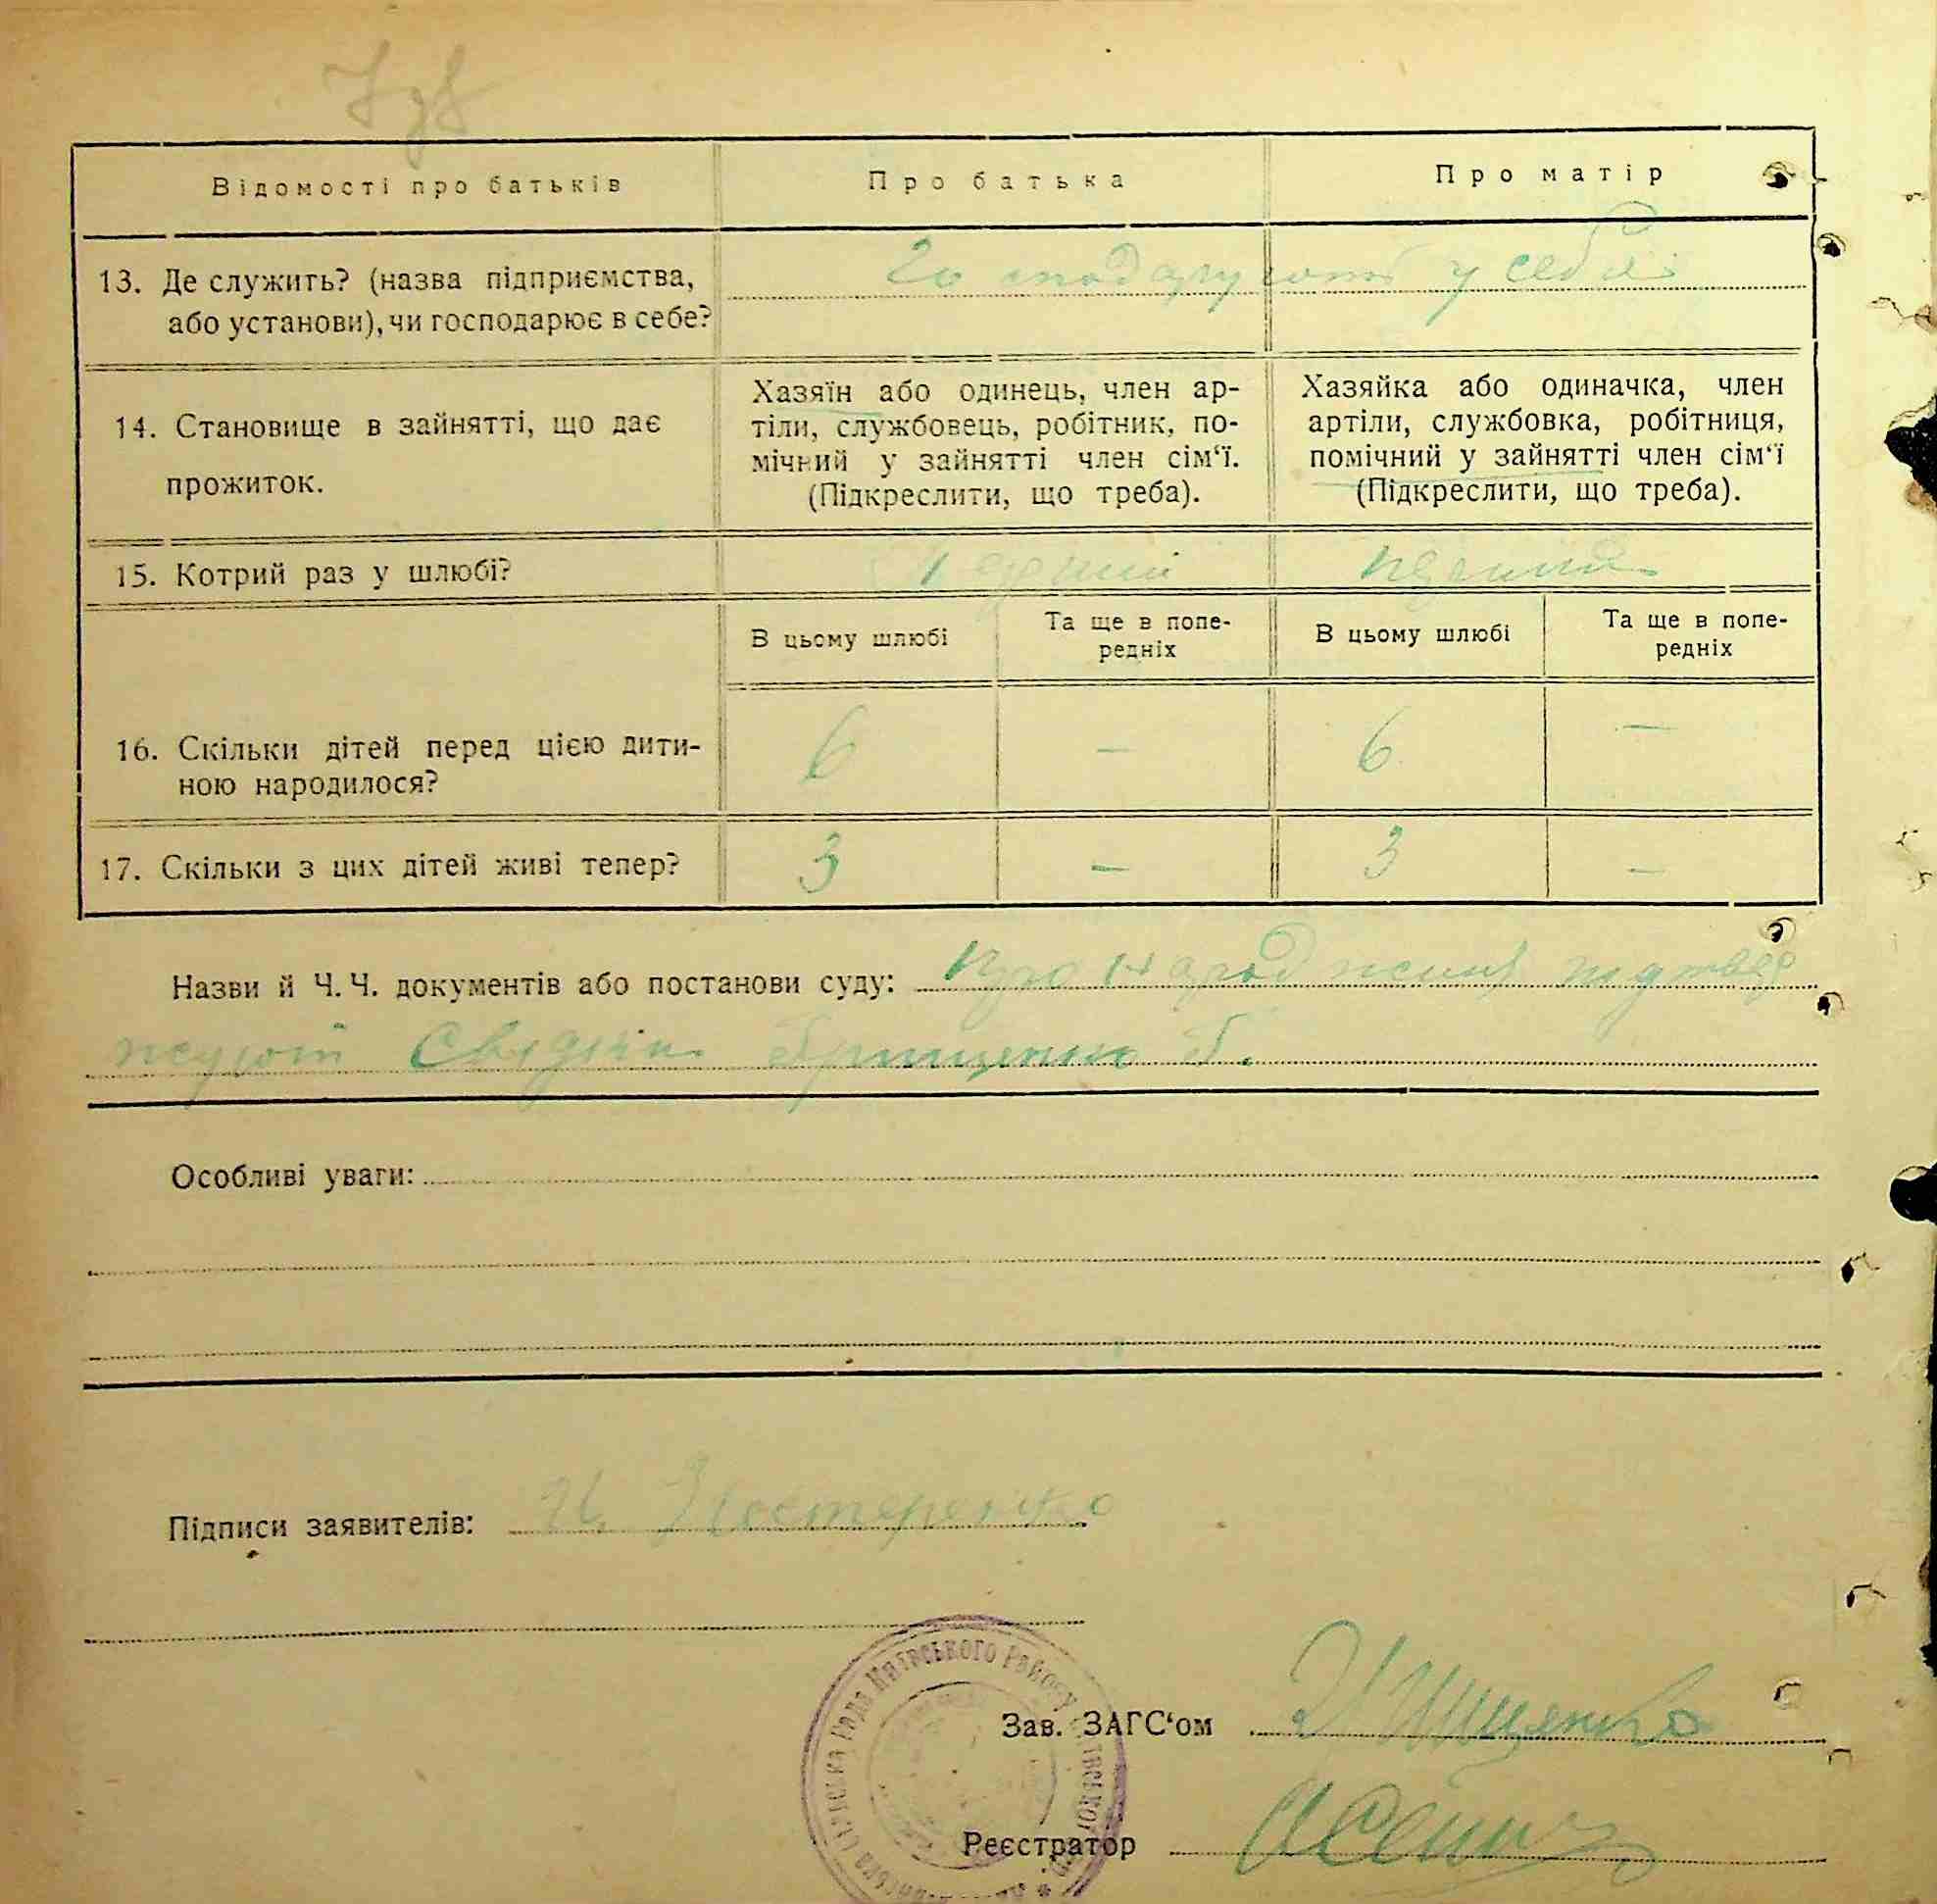 Відомості про батьків Про батька Про матір
13. Де служить? (назва підприємства, або установи), чи господарює в себе?
Господарують у себе
14. Становище в зайнятті, що дає прожиток.
Хазяїн або одинець, член ар-
тіли, службовець, робітник, по-
мічний у зайнятті член сім‘ї.
(Підкреслити, що треба).
Хазяйка або одиначка, член
артіли, службовка, робітниця,
помічний у зайнятті член сім‘ї
(Підкреслити, що треба).
15. Котрий раз у шлюбі?
В цьому шлюбі Та ще в попе-
редніх
В цьому шлюбі Та ще в попе-
редніх
16. Скільки дітей перед цією дити-
ною народилося?
6 — 6 —
17. Скільки з цих дітей живі тепер? 3 — 3 —
Назви й Ч. Ч. документів або постанови суду: Про народження
Особливі уваги:
Підписи заявителів: Нестеренко
Зав. ЗАГС‘ом
Реєстратор
Рада Району